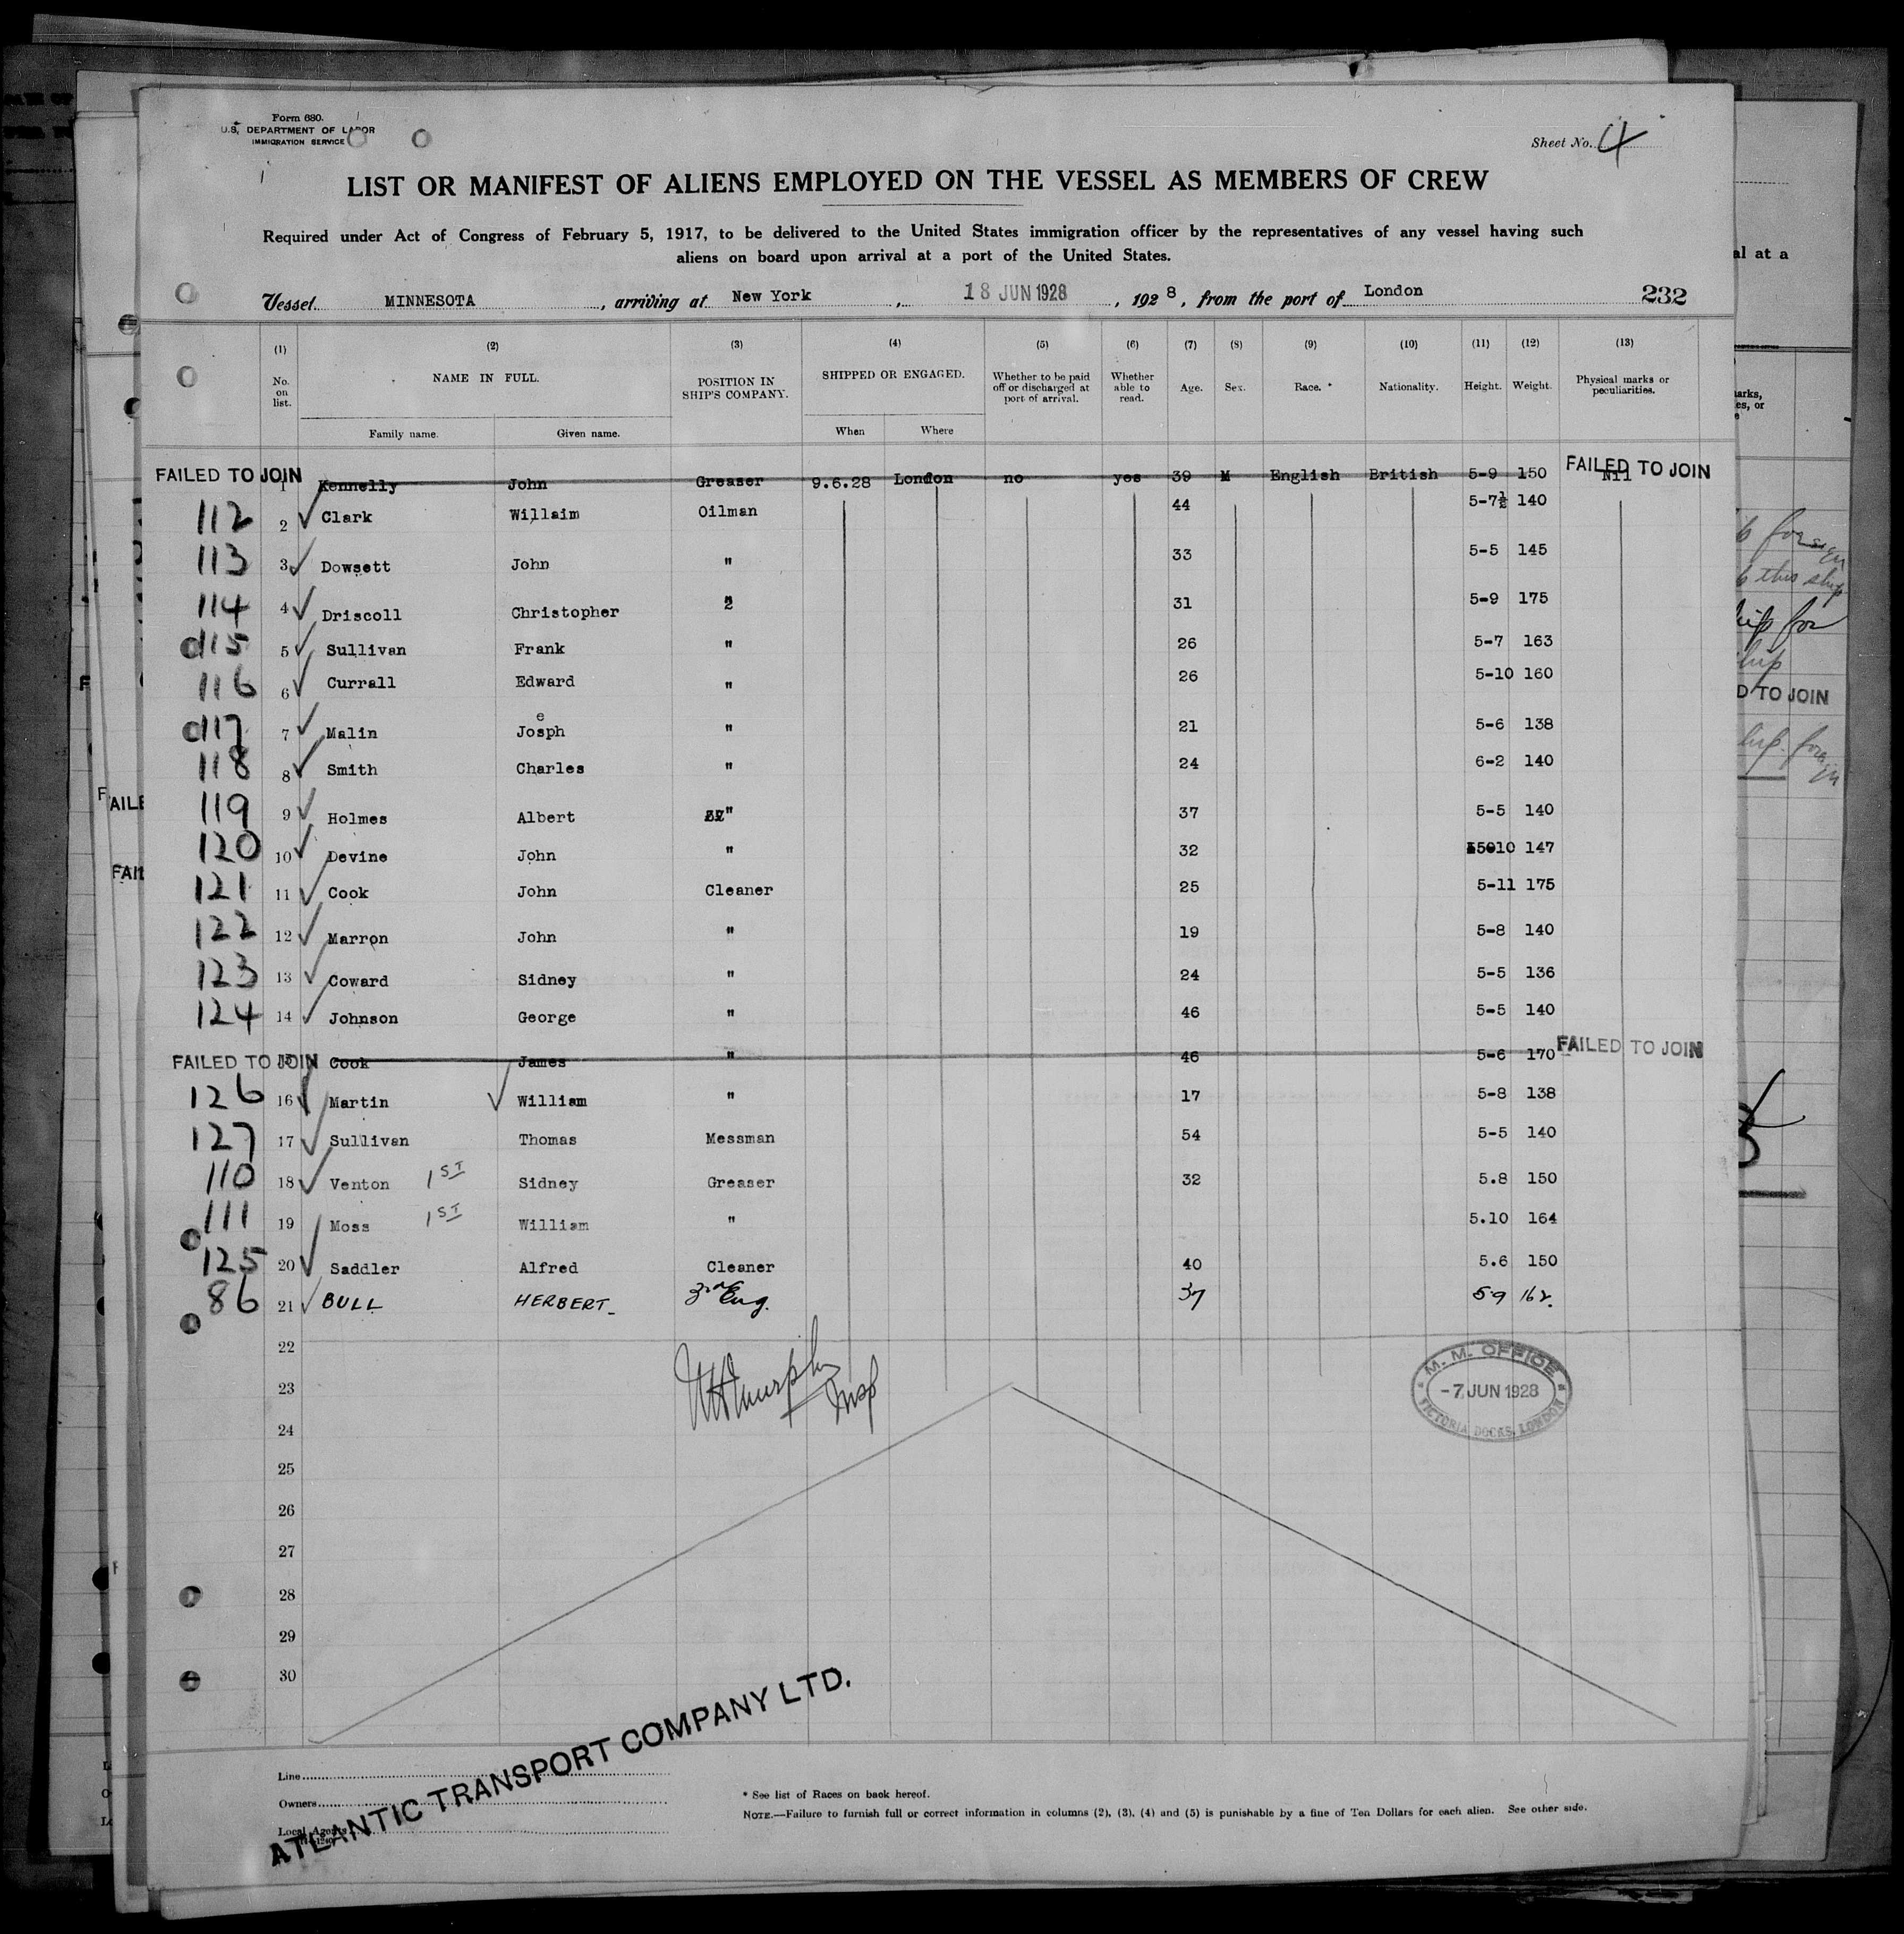 Form 680.
U.S. DEPARTMENT OF LABOR
IMMIGRATION SERVICE
Sheet No. 4
LIST OR MANIFEST OF ALIENS EMPLOYED ON THE VESSEL AS MEMBERS OF CREW
Required under Act of Congress of February 5, 1917, to be delivered to the United States immigration officer by the representatives of any vessel having such
aliens on board upon arrival at a port of the United States.
Vessel MINNESOTA, arriving at New York, 18 JUN 1928, 1928, from the port of London 232
(1) (2) (3) (4) (5) (6) (7) (8) (9) (10) (11) (12) (13)
No. on list. NAME IN FULL. POSITION IN SHIP'S COMPANY. SHIPPED OR ENGAGED. Whether to be paid off or discharged at port of arrival. Whether able to read. Age. Sex. Race. * Nationality. Height. Weight. Physical marks or peculiarities.
Family name. Given name. When Where
FAILED TO JOIN 1 Kennelly John Greaser 9.6.28 London no yes 39 M English British 5-9 150 Nil FAILED TO JOIN
112 2 Clark Willaim Oilman 44 5-7½ 140
113 3 Dowsett John " 33 5-5 145
114 4 Driscoll Christopher " 31 5-9 175
d115 5 Sullivan Frank " 26 5-7 163
116 6 Currall Edward " 26 5-10 160
d117 7 Malin Joseph " 21 5-6 138
118 8 Smith Charles " 24 6-2 140
119 9 Holmes Albert " 37 5-5 140
120 10 Devine John " 32 5-10 147
121 11 Cook John Cleaner 25 5-11 175
122 12 Marron John " 19 5-8 140
123 13 Coward Sidney " 24 5-5 136
124 14 Johnson George " 46 5-5 140
FAILED TO JOIN 15 Cook James " 46 5-6 170 FAILED TO JOIN
126 16 Martin William " 17 5-8 138
127 17 Sullivan Thomas Messman 54 5-5 140
110 18 Venton 1ST Sidney Greaser 32 5.8 150
111 19 Moss 1ST William " 5.10 164
125 20 Saddler Alfred Cleaner 40 5.6 150
86 21 BULL HERBERT 3rd Eng. 37 5 9 162.
22
23
24
25
26
27
28
29
30
M. M. OFFICE
-7 JUN 1928
VICTORIA DOCKS, LONDON
ATLANTIC TRANSPORT COMPANY LTD.
Line
Owners
Local Agents
* See list of Races on back hereof.
NOTE.—Failure to furnish full or correct information in columns (2), (3), (4) and (5) is punishable by a fine of Ten Dollars for each alien. See other side.